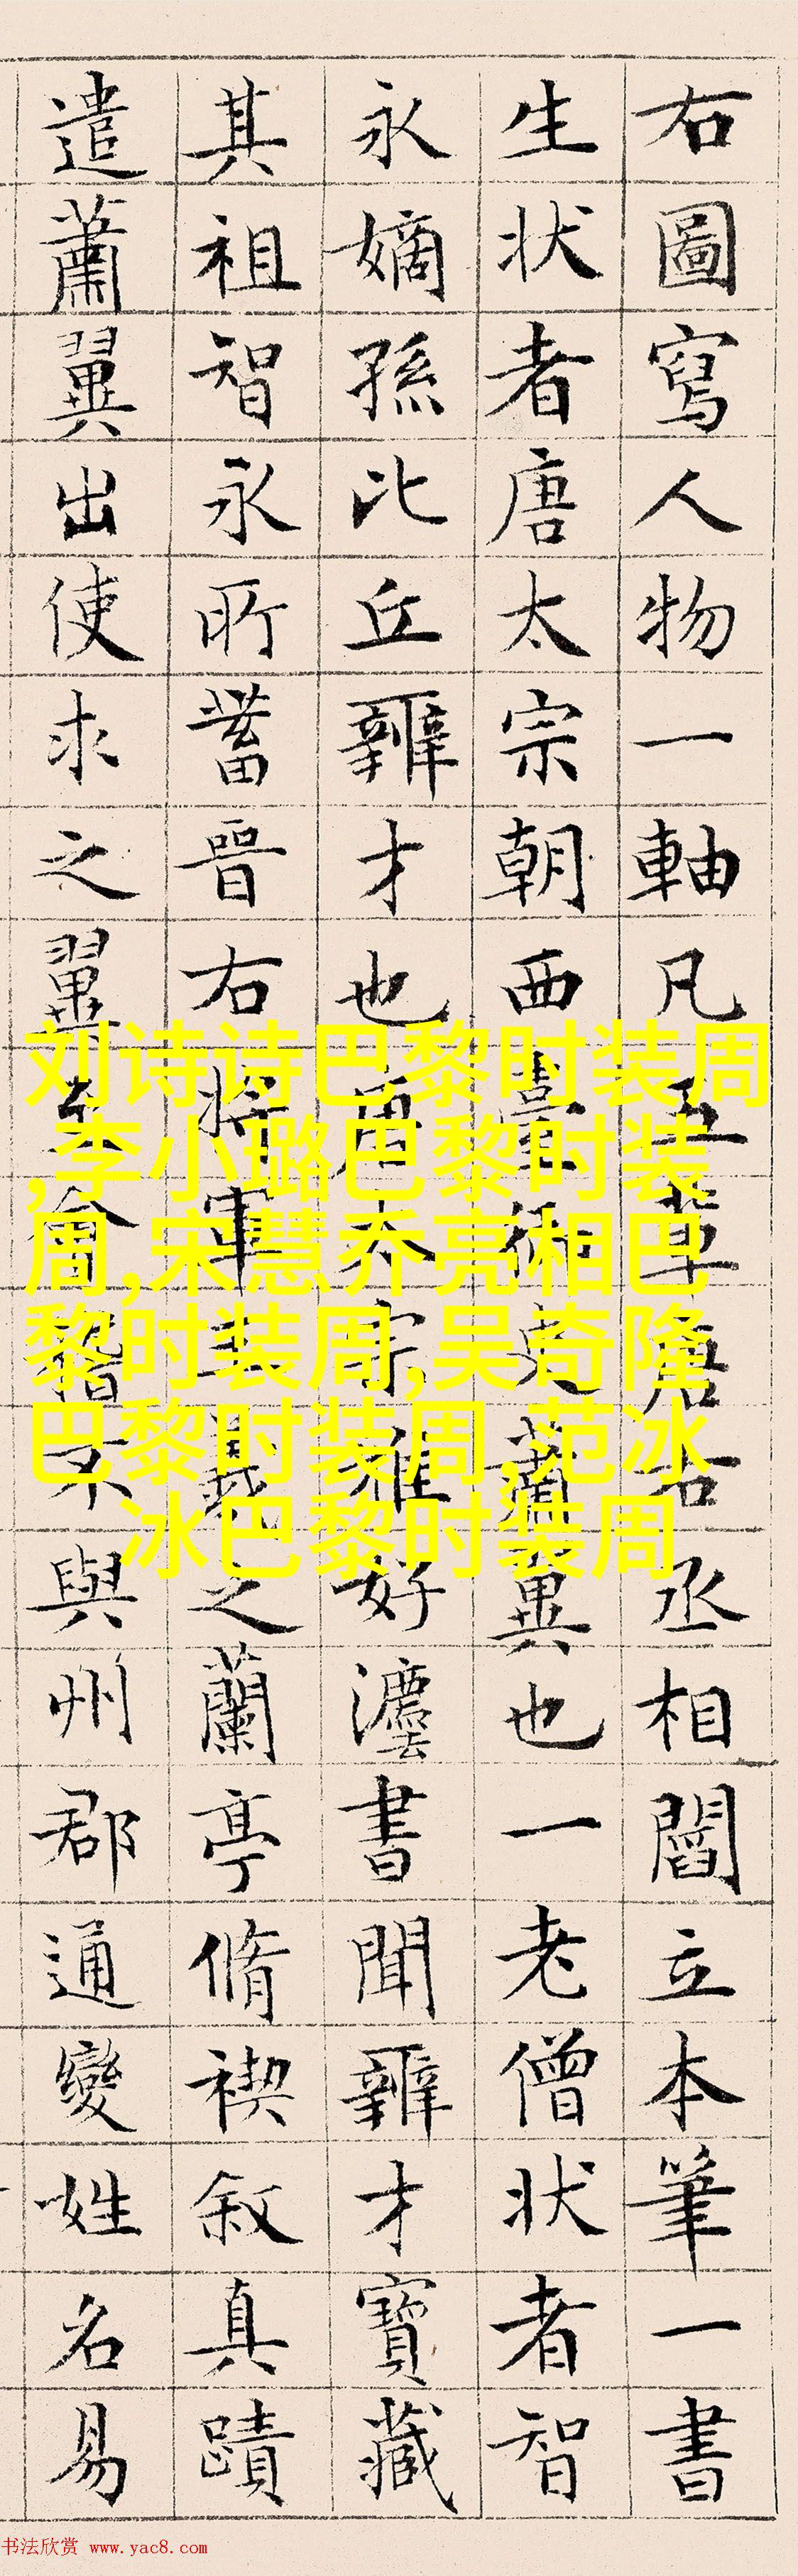 右圖寫人物一軸凡五輩唐右丞相閻立本筆一書
生状者唐太宗朝西臺御史蕭翼也一老僧状者智
永嫡孫比丘辨才也唐太宗雅好灋書聞辨才寶藏
其祖智永所蓄晉右將軍王羲之蘭亭脩禊叙真蹟
遣蕭翼出使求之翼至會稽不與州郡通變姓名易
刘诗诗巴黎时装周
,李小璐巴黎时装
周,宋慧乔亮相巴
黎时装周,吴奇隆
巴黎时装周,范冰
冰巴黎时装周
书法欣赏 www.yac8.com